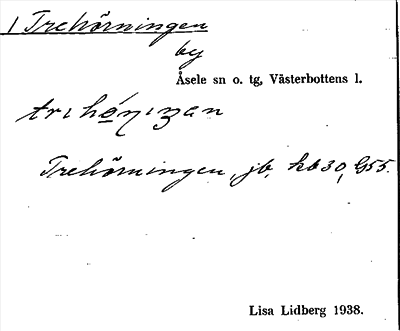 1 Trehörningen
by
Åsele sn o. tg, Västerbottens l.
Trehörningen, jb, hb 30, G55.
Lisa Lidberg 1938.